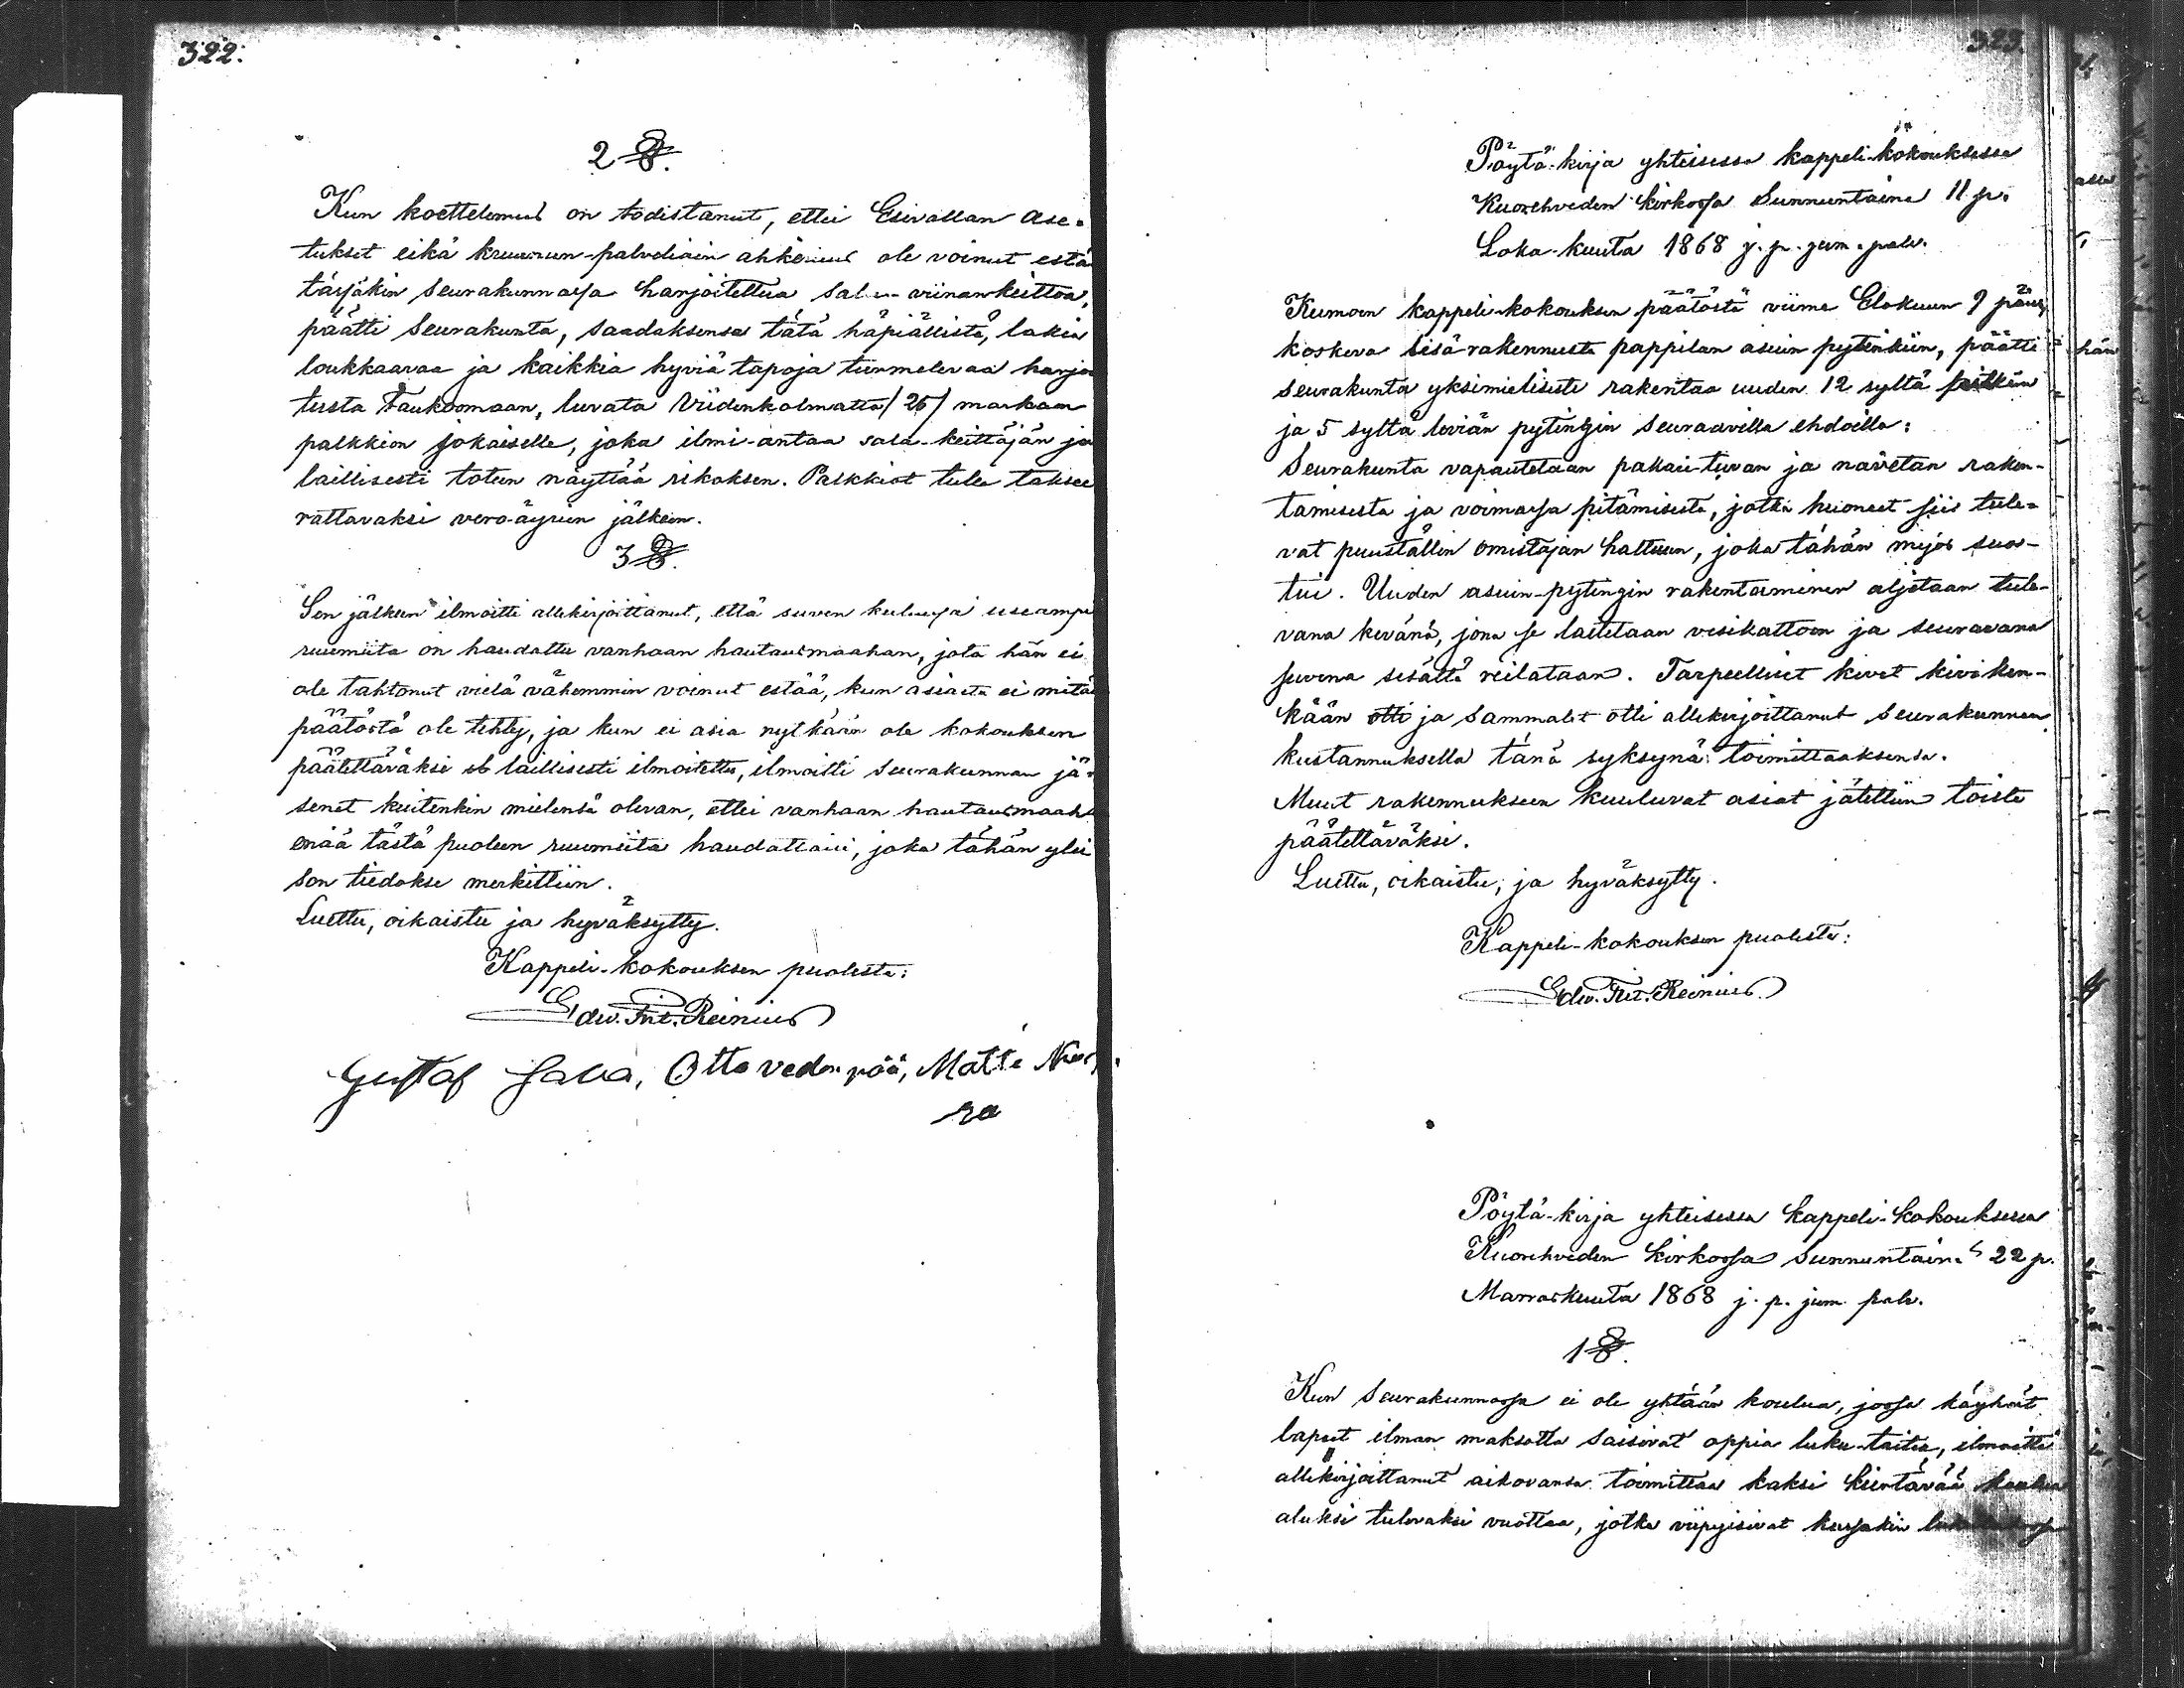 322.
2 §.
Kun koettelemus on todistanut, ettei Esivallan ase-
tukset eikä kruunun-palveliain ahkeruus ole voinut estä
täsäkin seurakunnasa harjoitettua sala-viinankeittoa,
päätti Seurakunta, saadaksensa tätä häpiällistä, lakia
loukkaavaa ja kaikkia hyviä tapoja turmelevaa harjo
tusta taukoomaan, luvata Viidenkolmatta /25/ markan
palkkion jokaiselle, joka ilmi-antaa sala-keittäjän ja
laillisesti toteen näyttää rikoksen. Palkkiot tulee taksee
rattavaksi vero-äyrien jälkeen.
3 §.
Sen jälkeen ilmoitti allekirjoittanut, että suven kuluesa useampi
ruumiita on haudattu vanhaan hautausmaahan, jota hän ei
ole tahtonut vielä vähemmin voinut estää, kun asiasta ei mitää
päätöstä ole tehty, ja kun ei asia nytkään ole kokouksen
päätettäväksi laillisesti ilmoitettu, ilmoitti Seurakunnan jä-
senet kuitenkin mielensä olevan, ettei vanhaan hautausmaaha
enää tästä puoleen ruumiita haudattaisi, joka tähän ylei
sön tiedoksi merkittiin.
Luettu, oikaistu ja hyväksytty.
Kappeli-kokouksen puolesta:
Edw. Frit. Reinius
Gustaf Sava, Otto vedenpää, Matti
ra
323.
Pöytä-kirja yhteisessä kappeli-kokouksessa
Kuorehveden kirkosa Sunnuntaina 11 p.
Loka-kuuta 1868 j. p. jum. palv.
Kumoen kappeli-kokouksen päätöstä viime Elokuun 9 päiv.
koskeva lisärakennusta pappilan asuin pytinkiin, päätti
seurakunta yksimielisesti rakentaa uuden 12 syltä pitkän
ja 5 syltä leviän pytingin seuraavilla ehdoilla:
Seurakunta vapautetaan pakari-tuvan ja navetan raken-
tamisesta ja voimasa pitämisestä, jotka huoneet siis tule-
vat puuställin omistajan haltuun, joka tähän myös suos-
tui. Uuden asuin-pytingin rakentaminen aljetaan tule-
vana kevänä, jona se laitetaan vesikattoon ja seuraavana
suvena sisältä reilataan. Tarpeelliset kivet kiviken-
kään otti ja sammalet otti allekirjoittanut Seurakunnan
kustannuksella tänä syksynä toimittaaksensa.
Muut rakennukseen kuuluvat asiat jätettiin toiste
päätettäväksi.
Luettu, oikaistu, ja hyväksytty.
Kappeli-kokouksen puolesta:
Edw. Frit. Reinius.
Pöytä-kirja yhteisessä Kappeli-kokouksessa
Kuorehveden kirkosa Sunnuntaina 22 p.
Marraskuuta 1868 j. p. jum. palv.
1 §.
Kun Seurakunnasa ei ole yhtään koulua, josa käyhät
lapset ilman maksotta saisivat oppia luku-taitoa, ilmoitti
allekirjoittanut aikovansa toimittaa kaksi kiertävää koulua
aluksi tulevaksi vuottaa, jotka viipyisivät kusakin